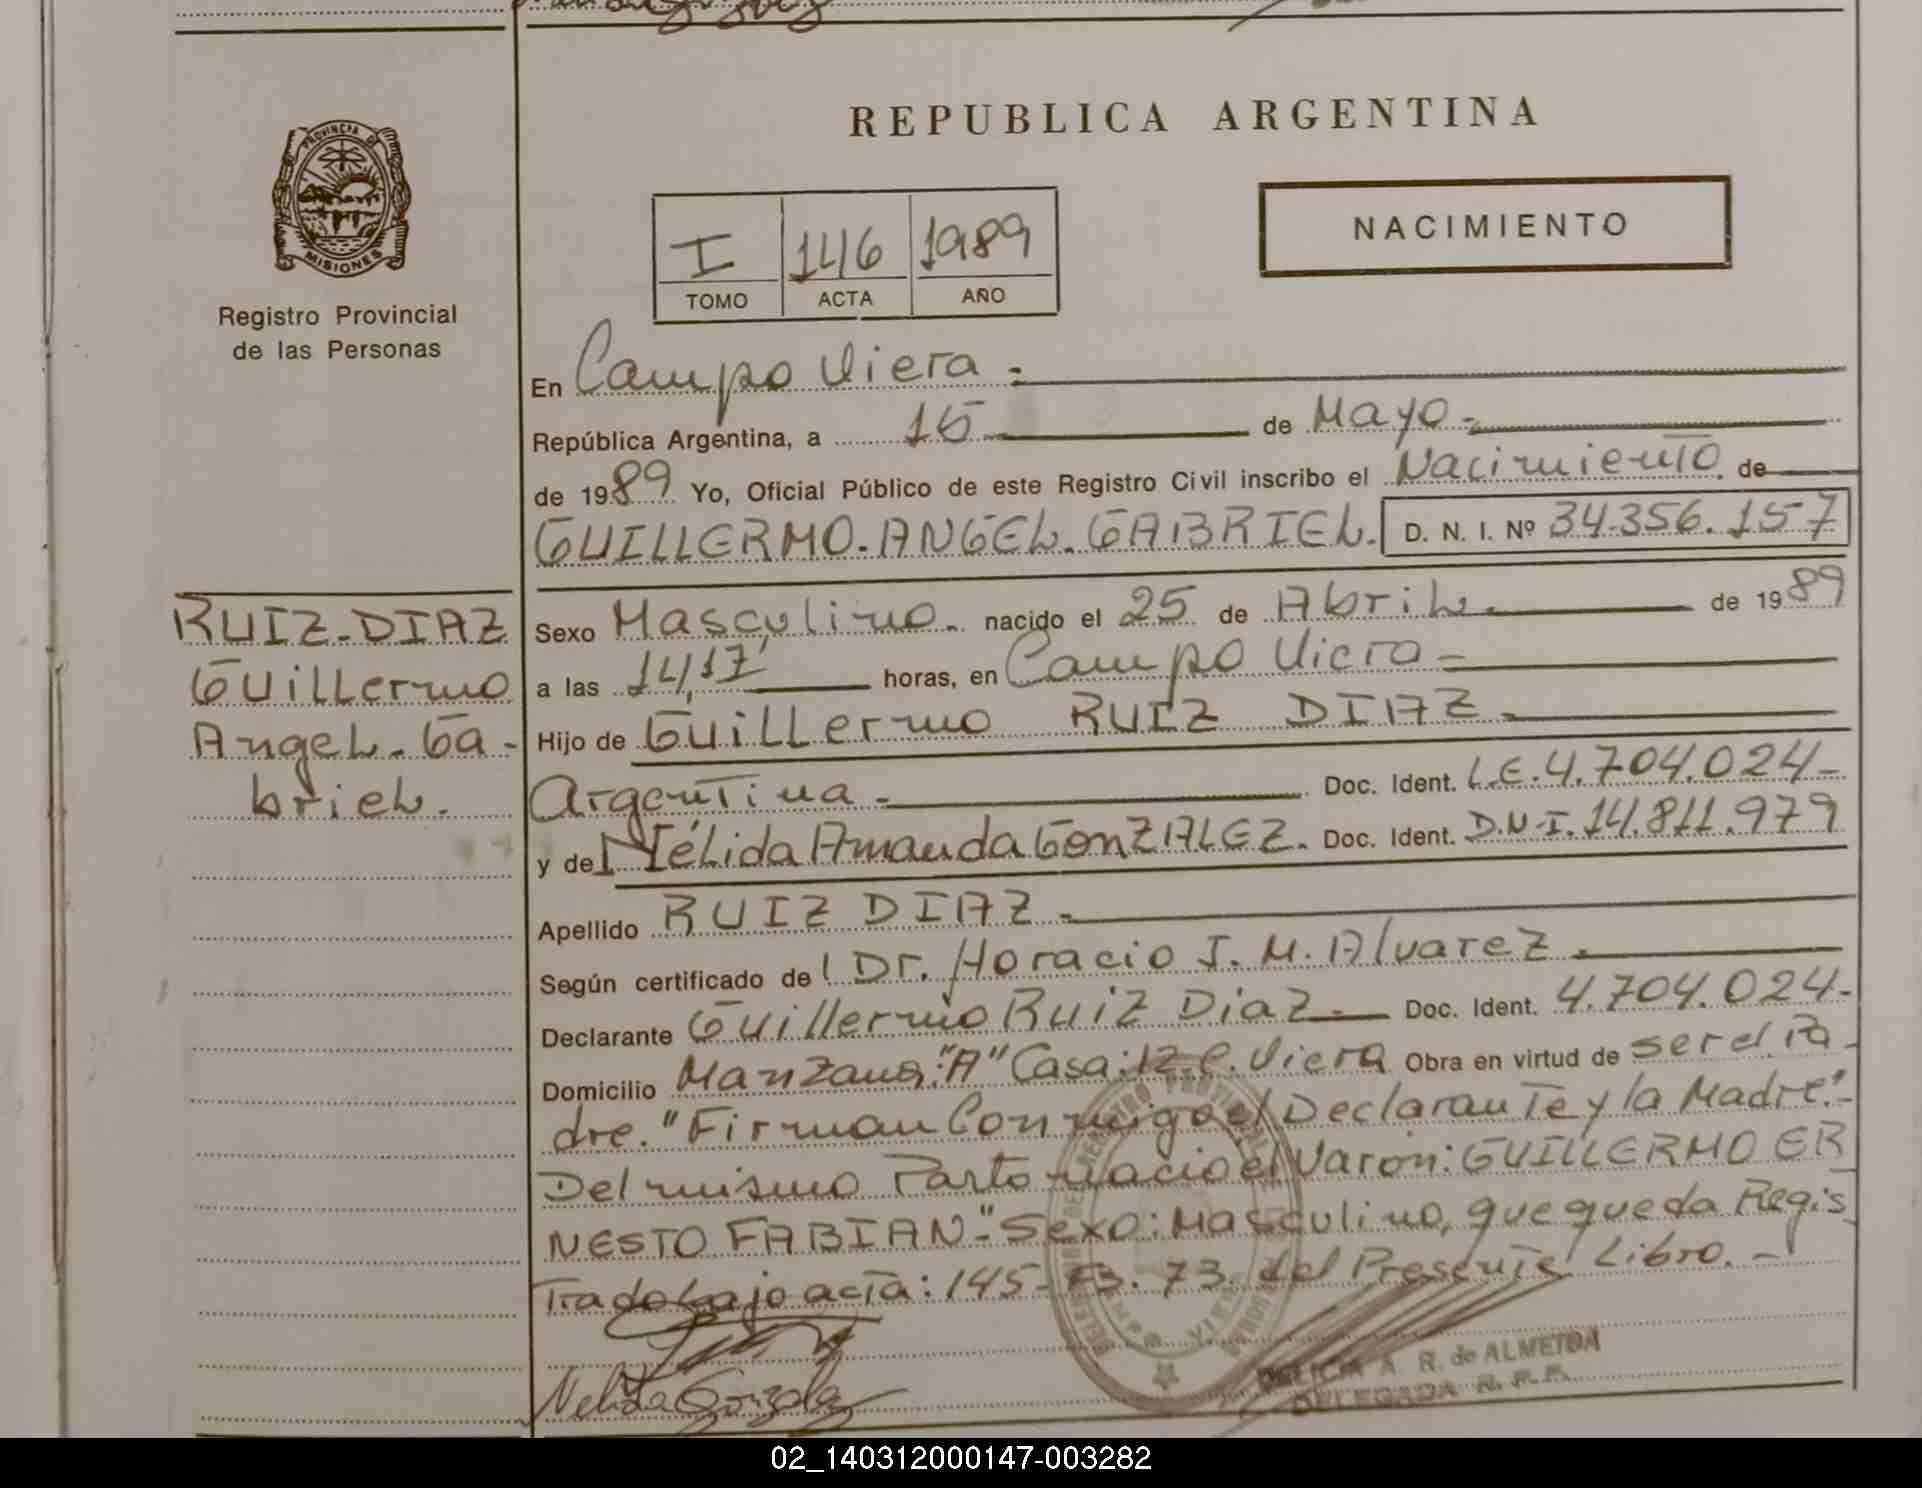 REPUBLICA ARGENTINA
PROVINCIA DE
MISIONES
Registro Provincial
de las Personas
I 146 1989
TOMO ACTA AÑO
NACIMIENTO
En Campo Viera.
República Argentina, a 15 de Mayo.
de 1989 Yo, Oficial Público de este Registro Civil inscribo el Nacimiento de
GUILLERMO.ANGEL.GABRIEL. D. N. I. Nº 34.356.157
RUIZ-DIAZ
Guillermo
Angel-Ga-
briel.
Sexo Masculino. nacido el 25 de Abril. de 1989
a las 14,17' horas, en Campo Viera
Hijo de Guillermo RUIZ DIAZ.
Argentina. Doc. Ident. L.E.4.704.024-
y de Nélida Amanda GonZALEZ. Doc. Ident. D.N.I. 14.811.979
Apellido RUIZ DIAZ.
Según certificado de Dr. Horacio J. M. Alvarez.
Declarante Guillermo Ruiz Diaz. Doc. Ident. 4.704.024-
Domicilio Manzana:"A" Casa:12-C. Viera Obra en virtud de ser el Pa-
dre."Firman Conmigo el Declarante y la Madre".-
Del mismo Parto nacio el Varón: GUILLERMO ER
NESTO FABIAN"-Sexo: Masculino, que queda Regis
Trado bajo acta: 145- 73. del Presente Libro.-
Nelida Gonzalez
DELICIA A. R. de ALMEIDA
DELEGADA R. P. P.
02_140312000147-003282